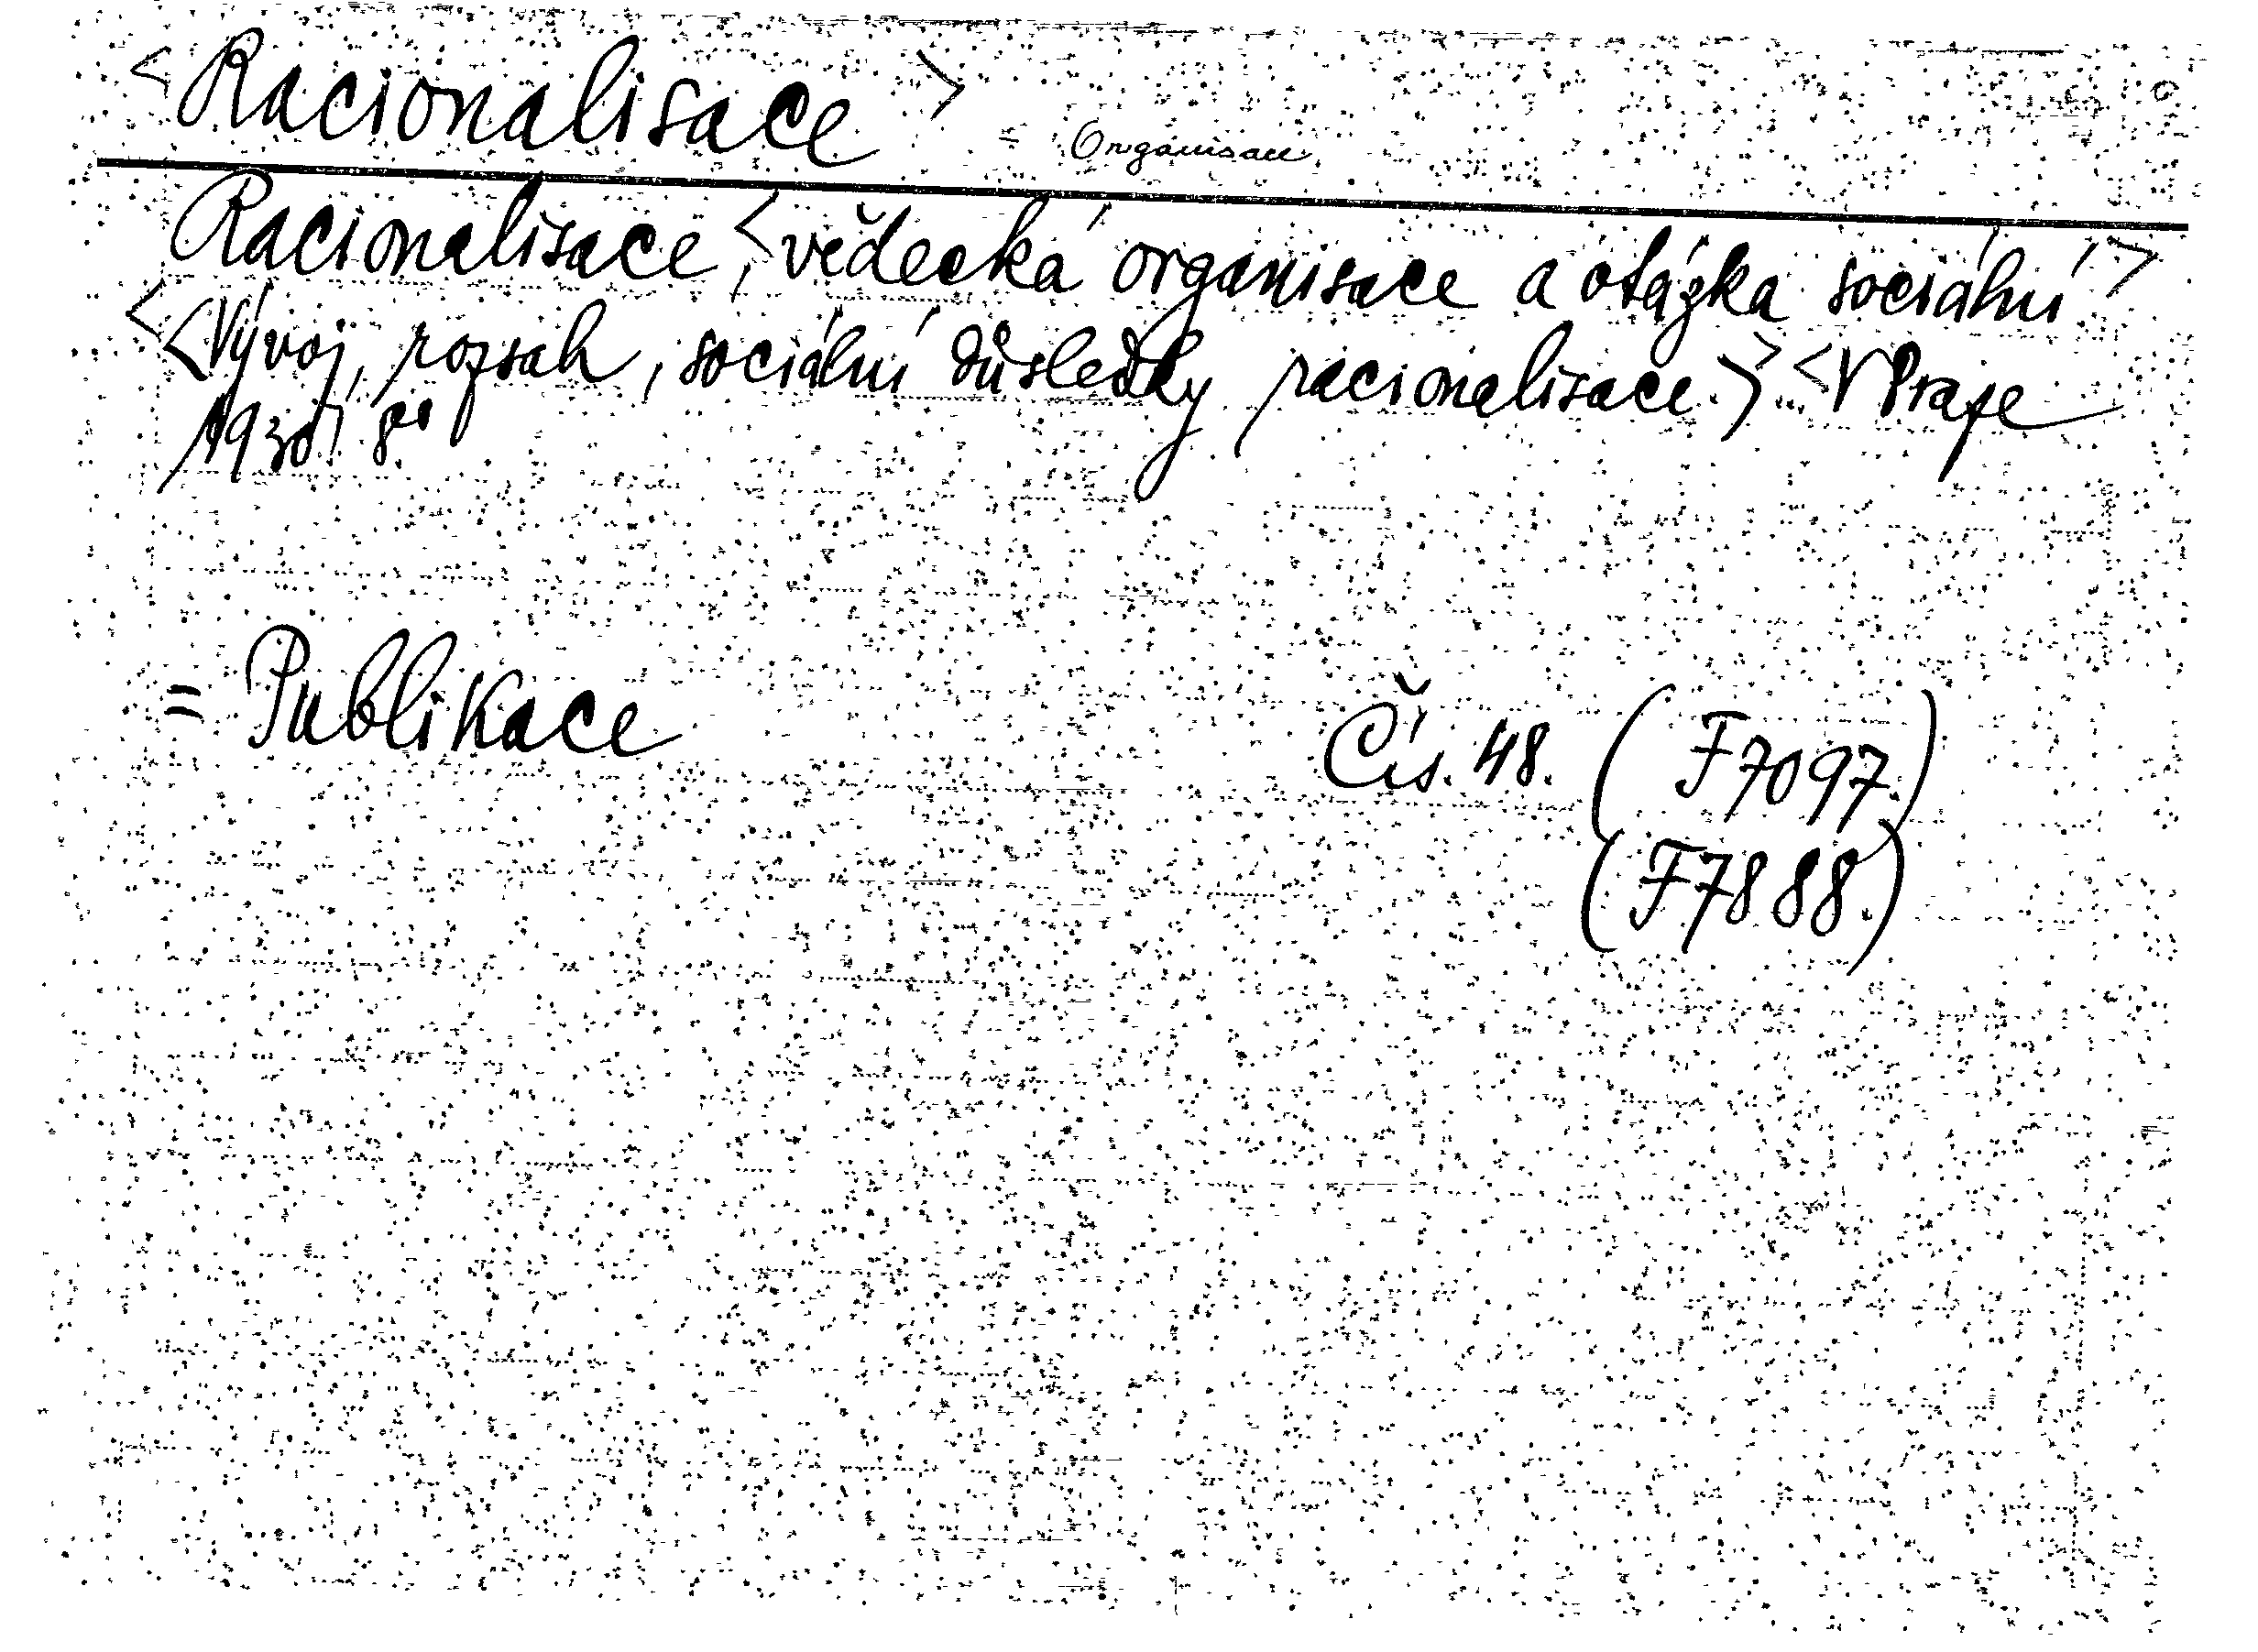 <Racionalisace> = Organisace
Racionalisace, <vědecká organisace a otázka sociální>
<<Vývoj, rozsah, sociální důsledky racionalisace.> ... <V Praze
1930> 8°
= Publikace Čís. 48. (F7097.)
(F7888.)